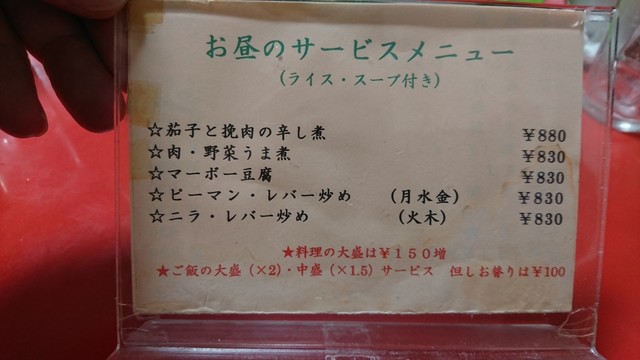 お昼のサービスメニュー
(ライス・スープ付き)
☆茄子と挽肉の辛し煮 ￥880
☆肉・野菜うま煮 ￥830
☆マーボー豆腐 ￥830
☆ピーマン・レバー炒め (月水金) ￥830
☆ニラ・レバー炒め (火木) ￥830
★料理の大盛は￥１５０増
★ご飯の大盛(×2)・中盛(×1.5)サービス 但しお替りは￥100